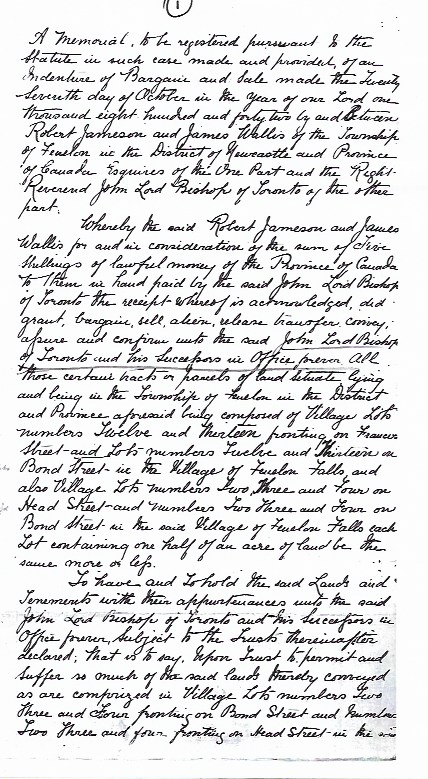 1
A Memorial, to be registered pursuant to the
Statute in such case made and provided, of an
Indenture of Bargain and Sale made the Twenty
Seventh day of October in the Year of our Lord one
thousand eight hundred and forty two by and Between
Robert Jameson and James Wallis of the Township
of Fenelon in the District of Newcastle and Province
of Canada Esquires of the One Part and the Right
Reverend John Lord Bishop of Toronto of the other
part.
Whereby the said Robert Jameson and James
Wallis for and in consideration of the sum of Five
Shillings of lawful money of the Province of Canada
to them in hand paid by the said John Lord Bishop
of Toronto the receipt whereof is acknowledged, did
grant, bargain, sell, alien, release transfer, convey,
assure and confirm unto the said John Lord Bishop
of Toronto and his Successors in Office forever All
those certain tracts or parcels of land situate lying
and being in the Township of Fenelon in the District
and Province aforesaid being composed of Village Lots
numbers Twelve and thirteen fronting on Francis
Street and Lots numbers Twelve and Thirteen on
Bond Street in the Village of Fenelon Falls, and
also Village Lots numbers Two, Three and Four on
Head Street and numbers Two Three and Four on
Bond Street in the said Village of Fenelon Falls each
Lot containing one half of an acre of land be the
same more or less.
To have and to hold the said Lands and
Tenements with their appurtenances unto the said
John Lord Bishop of Toronto and his Successors in
Office forever, Subject to the Trusts thereinafter
declared; that is to say, Upon Trust to permit and
suffer so much of the said lands thereby conveyed
as are comprized in Village Lots numbers Two
Three and Four fronting on Bond Street and Numbers
Two Three and four fronting on Head Street in the